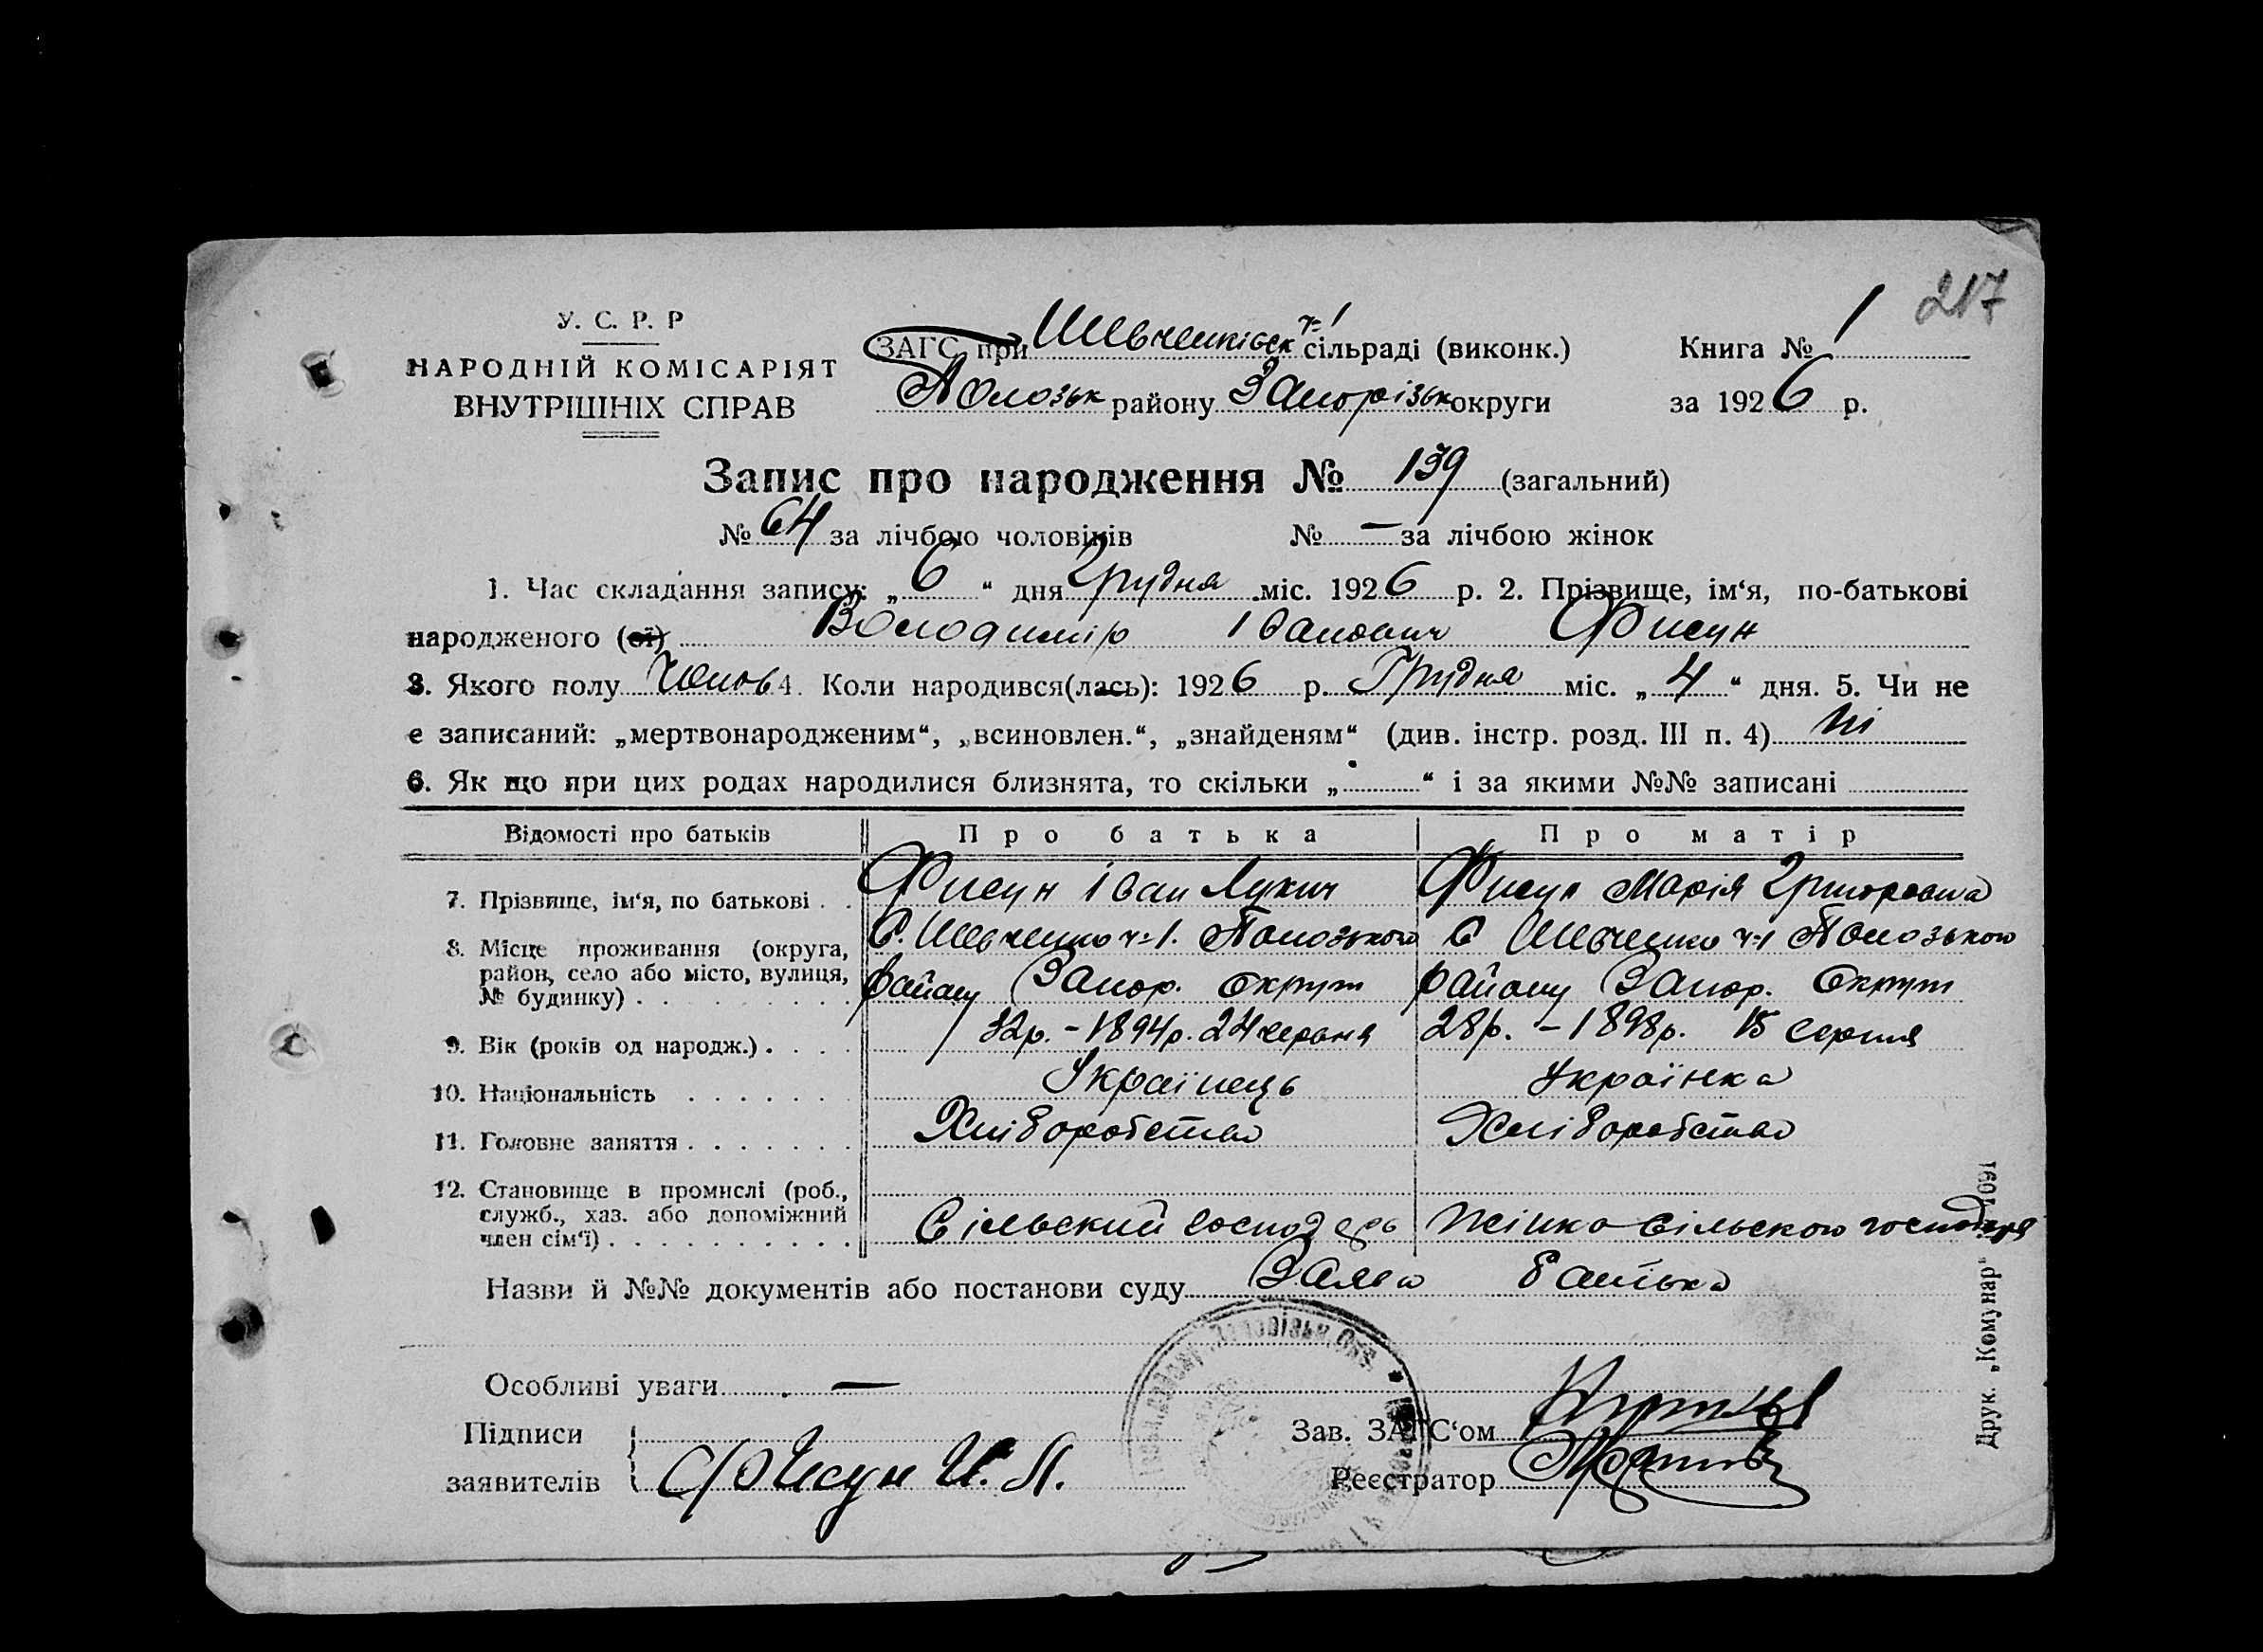 217
У. С. Р. Р
НАРОДНІЙ КОМІСАРІЯТ
ВНУТРІШНІХ СПРАВ
ЗАГС при Шевченківськ ч-1 сільраді (виконк.) Книга № 1
Полозьк району Запорізьк округи за 1926 р.
Запис про народження № 139 (загальний)
№ 64 за лічбою чоловіків № — за лічбою жінок
1. Час складання запису: „6“ дня Грудня міс. 1926 р. 2. Прізвище, ім‘я, по-батькові
народженого (ої) Володимір Іванович Фисун
3. Якого полу Чолов 4. Коли народився(лась): 1926 р. Грудня міс. „4“ дня. 5. Чи не
є записаний: „мертвонародженим“, „всиновлен.“, „знайденям“ (див. інстр. розд. III п. 4) Ні
6. Як що при цих родах народилися близнята, то скільки „ “ і за якими №№ записані
Відомості про батьків Про батька Про матір
7. Прізвище, ім‘я, по батькові . . Фисун Іван Лукич Фисун Марія Григоровна
8. Місце проживання (округа, район, село або місто, вулиця, № будинку) . С. Шевченко ч-1. Полозького С Шевченко ч-1 Полозького
району Запор. Округи району Запор. Округи
9. Вік (років од народж.) . . . . 32р. – 1894р. 24 червня 28р. – 1898р. 15 серпня
10. Національність . . . . . . . Українець Українка
11. Головне заняття . . . . . . . Хліборобство Хліборобство
12. Становище в промислі (роб., служб., хаз. або допоміжний член сім‘ї) . Сільский господарь Жінка сільского господаря
Назви й №№ документів або постанови суду Заява батька
Особливі уваги —
Підписи
заявителів Фисун И. Л.
Зав. ЗАГС‘ом
Реєстратор
Друк. „Комунар“ 1091